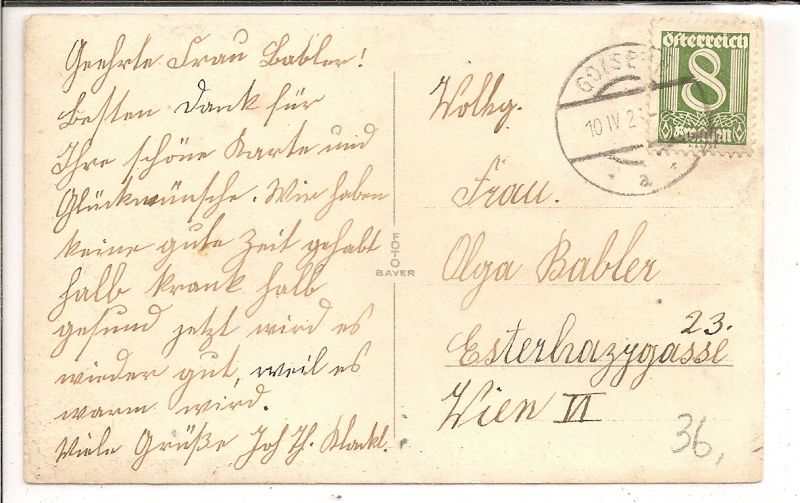 Geehrte Frau Babler!
Besten Dank für
Ihre schöne Karte und
Glückwünsche. Wir haben
keine gute Zeit gehabt
halb krank halb
gesund jetzt wird es
wieder gut, weil es
warm wird.
Viele Grüße Joh Th.
FOTO
BAYER
Österreich
8
Groschen
10 IV 2
a
Wolhg.
Frau.
Olga Babler
23.
Esterhazygasse
Wien VI
36,